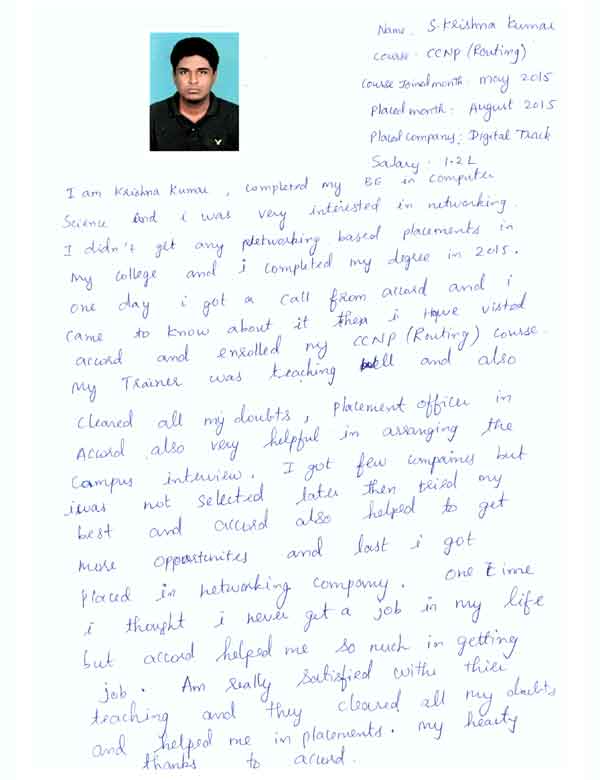 Name : S. Krishna Kumar
Course : CCNP (Routing)
Course Joined month : may 2015
Placed month : August 2015
Placed company : Digital Track
Salary : 1.2 L
I am Krishna Kumar, completed my BE in computer
Science and i was very interested in networking.
I didn't get any networking based placements in
my college and i completed my degree in 2015.
one day i got a call from accord and i
came to know about it then i Have visted
accord and enrolled my CCNP (Routing) course.
my Trainer was teaching well and also
cleared all my doubts, Placement officer in
Accord also very helpful in arranging the
campus interview. I got few compaines but
i was not selected later then tried my
best and accord also helped to get
more opportunites and last i got
placed in networking company. one time
i thought i never get a job in my life
but accord helped me so much in getting
job. Am really satisfied withe thier
teaching and they cleared all my doubts
and helped me in placements. my hearty
thanks to accord.